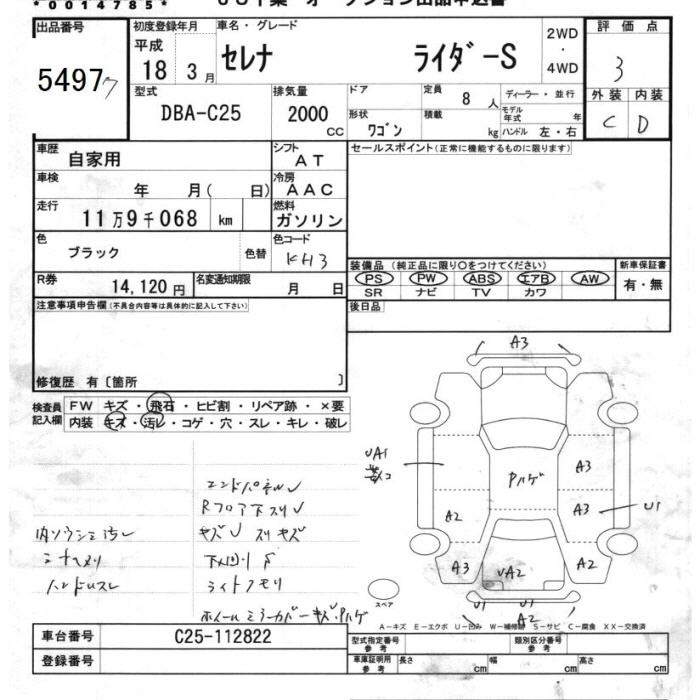 *0014785*
出品番号 初度登録年月 車名・グレード 2WD・4WD 評価点
5497ワ 平成18 3月 セレナ ライダーS 3
型式 排気量 ドア 定員 ディーラー・並行 外装 内装
DBA-C25 2000cc 形状 ワゴン 積載 kg 8人 モデル年式 年 ハンドル 左・右 C D
車歴 自家用 シフト AT セールスポイント(正常に機能するものに限ります)
車検 年 月( 日) 冷房 AAC
走行 11万9千068 km 燃料 ガソリン
色 ブラック 色替 色コード KH3
装備品(純正品に限り○をつけてください) 新車保証書
PS PW ABS エアB AW 有・無
SR ナビ TV カワ
R券 14,120円 名変通知期限 月 日
注意事項申告欄(不具合内容等は具体的に記入して下さい) 後日品
修復歴 有〔箇所 〕
検査員記入欄 FW キズ・飛石・ヒビ割・リペア跡・×要
内装 キズ・汚レ・コゲ・穴・スレ・キレ・破レ
エンドパネル
Rフロア下スリ
内ソウシミ汚レ キズ スリキズ
ハンドルスレ ライトクモリ
ホイール ミラーカバーキズ・Pハゲ
A3
UA1 Pハゲ A3
A2 A3 U1
A3 UA2 A2
U1 U1
A2
スペア
A-キズ E-エクボ U-凹み W-補修跡 S-サビ C-腐食 XX-交換済
車台番号 C25-112822 型式指定番号 参考 類別区分番号 参考
登録番号 車庫証明用 参考 長さ cm 幅 cm 高さ cm